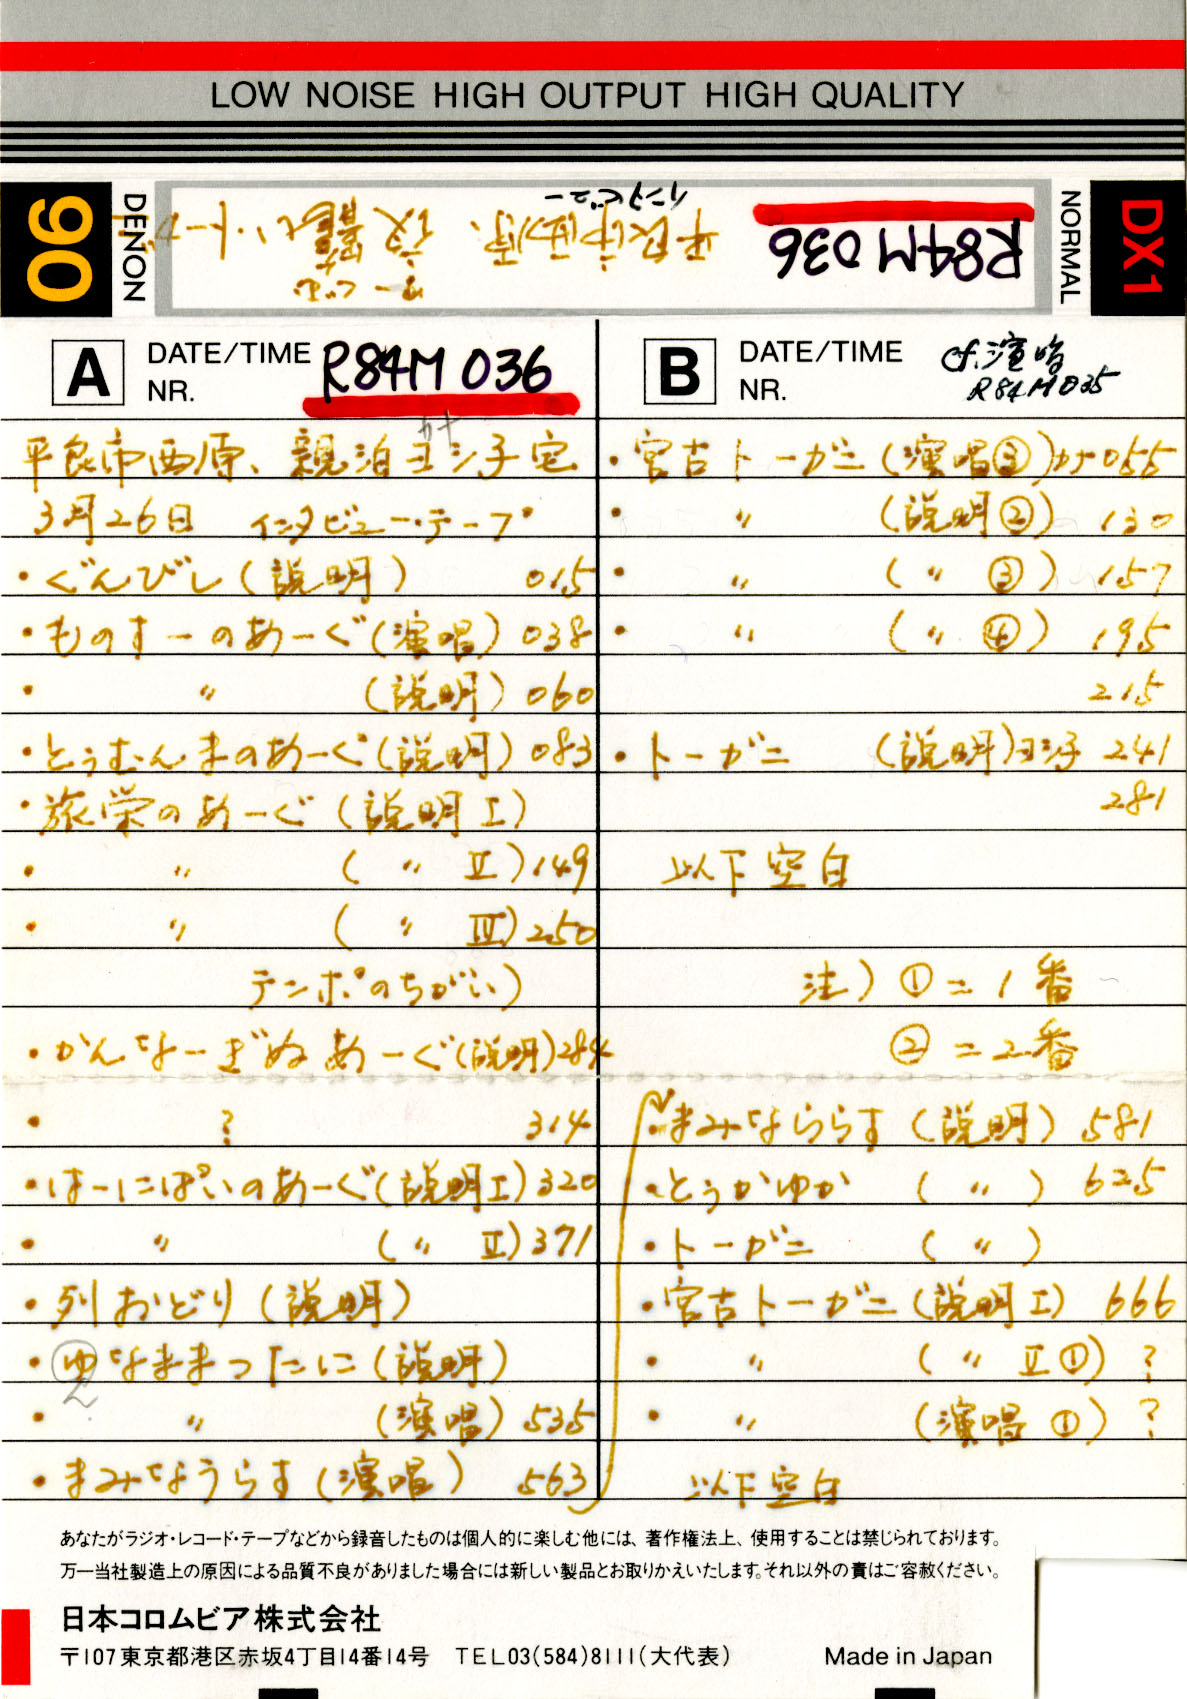 LOW NOISE HIGH OUTPUT HIGH QUALITY
90
DENON
R84M036
平良市西原、
インタビュー
NORMAL
DX1
A
DATE/TIME
NR.
R84M036
カナ
平良市西原、親泊ヨシ子宅
3月26日 インタビュー・テープ
・ぐんびし(説明) 015
・ものすーのあーぐ(演唱) 038
・ 〃 (説明) 060
・とぅむんまのあーぐ(説明) 083
・旅栄のあーぐ(説明I)
・ 〃 ( 〃 II) 149
・ 〃 ( 〃 III) 250
テンポのちがい)
・かんなーぎぬあーぐ(説明) 284
・ ? 314
・はーにぱいのあーぐ(説明I) 320
・ 〃 ( 〃 II) 371
・列おどり(説明)
・ゆなままつたに(説明)
2
・ 〃 (演唱) 535
・まみなうらす(演唱) 563
B
DATE/TIME
NR.
cf.演唱
R84M035
・宮古トーガニ(演唱③)カナ055
・ 〃 (説明②) 130
・ 〃 ( 〃 ③) 157
・ 〃 ( 〃 ④) 195
215
・トーガニ (説明)ヨシ子 241
281
以下空白
注) ①=1番
②=2番
・まみなららす(説明) 581
・とぅかゆか ( 〃 ) 625
・トーガニ ( 〃 )
・宮古トーガニ(説明I) 666
・ 〃 ( 〃 II①) ?
・ 〃 (演唱①) ?
以下空白
あなたがラジオ・レコード・テープなどから録音したものは個人的に楽しむ他には、著作権法上、使用することは禁じられております。
万一当社製造上の原因による品質不良がありました場合には新しい製品とお取りかえいたします。それ以外の責はご容赦ください。
日本コロムビア株式会社
〒107東京都港区赤坂4丁目14番14号 TEL03(584)8111(大代表) Made in Japan